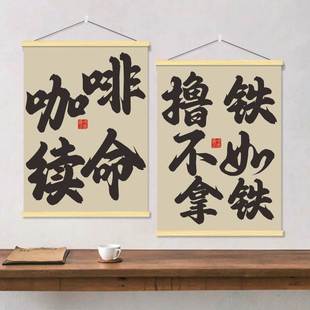 咖啡
续命
撸铁
不如
拿铁